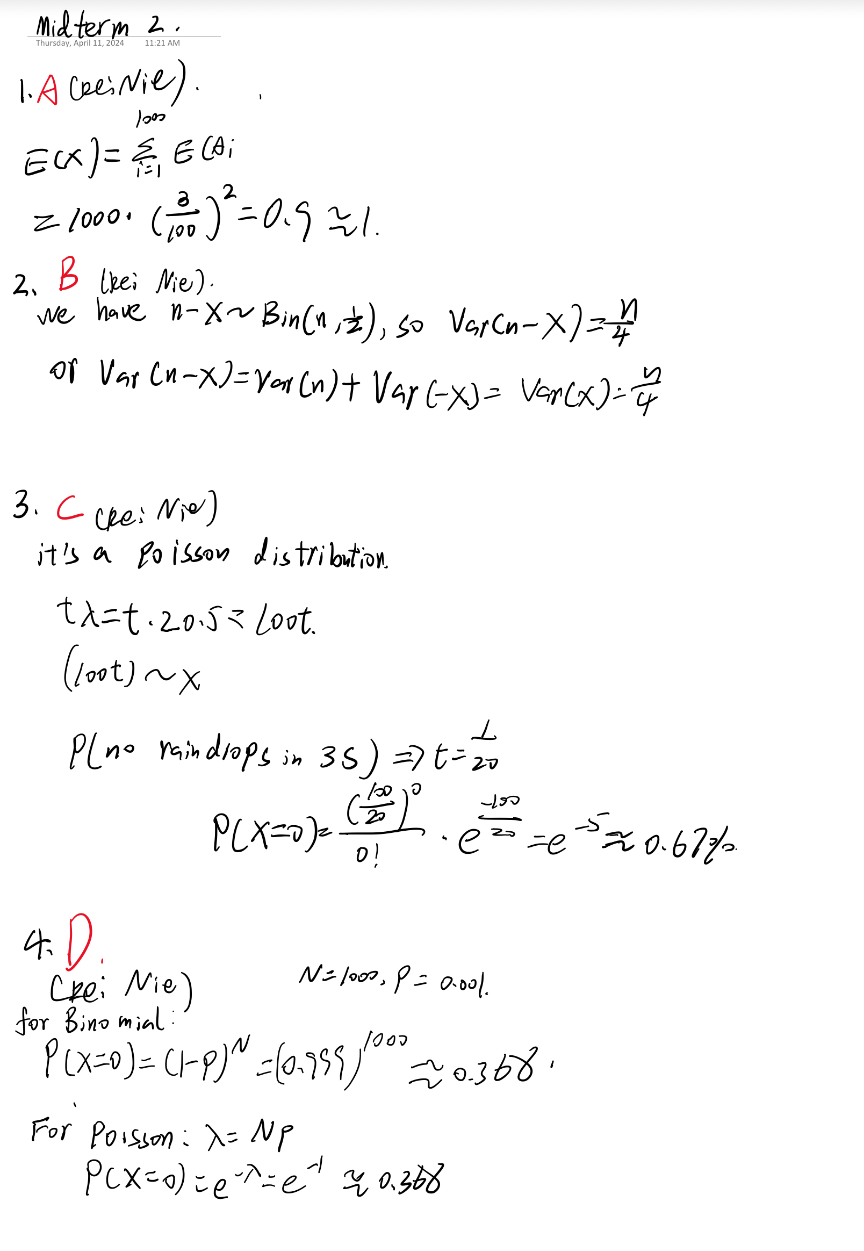 Midterm 2.
Thursday, April 11, 2024 11:21 AM
1. A (Kei Nie).
E(X) = 1000 Σ i=1 E(Ai
= 1000 · (3/100)^2 = 0.9 ≈ 1.
2. B (Kei Nie).
We have n-X ~ Bin(n, 1/2), so Var(n-X) = n/4
or Var(n-X) = Var(n) + Var(-X) = Var(X) = n/4
3. C (Kei Nie)
it's a Poisson distribution.
tλ = t · 20 · 5 = 100t.
(100t) ~ X
P(no raindrops in 3S) ⇒ t = 1/20
P(X=0) = (100/20)^0 / 0! · e^(-100/20) = e^-5 ≈ 0.67%.
4. D.
(Kei Nie) N = 1000, P = 0.001.
for Binomial:
P(X=0) = (1-P)^N = (0.999)^1000 ≈ 0.368.
For Poisson: λ = Np
P(X=0) = e^-λ = e^-1 ≈ 0.368